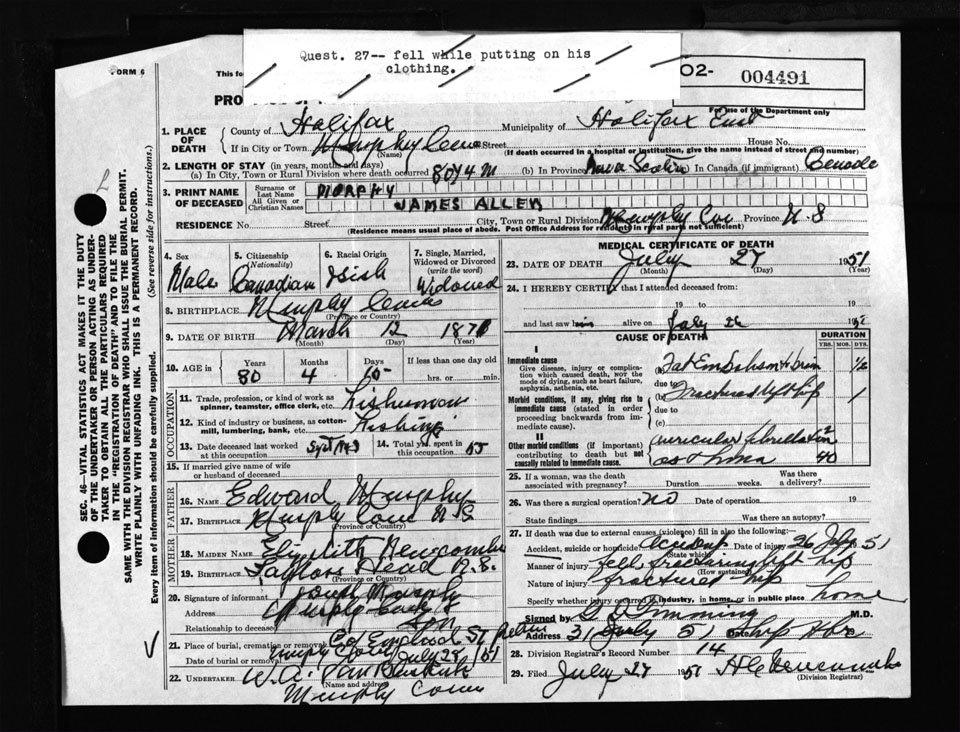 Quest. 27-- fell while putting on his
clothing.
FORM 6
This fo
O2-
004491
PRO
For use of the Department only
1. PLACE OF DEATH
County of Halifax Municipality of Halifax East
If in City or Town Murphy Cove Street House No.
(Name) (If death occurred in a hospital or institution, give the name instead of street and number)
2. LENGTH OF STAY (in years, months and days)
(a) In City, Town or Rural Division where death occurred 80 y 4 m (b) In Province Nova Scotia In Canada (if immigrant) Canada
3. PRINT NAME OF DECEASED
Surname or Last Name MORPHY
All Given or Christian Names JAMES ALLEN
RESIDENCE No. Street City, Town or Rural Division Murphy Cove Province N.S
(Residence means usual place of abode. Post Office Address for residents in rural parts not sufficient)
4. Sex 5. Citizenship (Nationality) 6. Racial Origin 7. Single, Married, Widowed or Divorced (write the word)
Male Canadian Irish Widowed
8. BIRTHPLACE Murphy Cove
(Province or Country)
9. DATE OF BIRTH March 12 1871
(Month) (Day) (Year)
10. AGE in Years Months Days If less than one day old
80 4 15 hrs. or min.
OCCUPATION
11. Trade, profession or kind of work as spinner, teamster, office clerk, etc. Fisherman
12. Kind of industry or business, as cotton-mill, lumbering, bank, etc. Fishing
13. Date deceased last worked at this occupation Sept 1943 14. Total yrs. spent in this occupation 55
15. If married give name of wife or husband of deceased
FATHER
16. NAME Edward Murphy
17. BIRTHPLACE Murphy Cove N S
(Province or Country)
MOTHER
18. MAIDEN NAME Elizabeth Newcombe
19. BIRTHPLACE Taylors Head N.S.
(Province or Country)
20. Signature of informant Murphy
Address Murphy
Relationship to deceased Son
21. Place of burial, cremation or removal Co England
Murphy Cove
Date of burial or removal July 28 1951
22. UNDERTAKER W. Van Buskirk
(Name and address)
Murphy Cove
MEDICAL CERTIFICATE OF DEATH
23. DATE OF DEATH July 27 1951
(Month) (Day) (Year)
24. I HEREBY CERTIFY that I attended deceased from:
19 to 19
and last saw him alive on July 26 1951
CAUSE OF DEATH DURATION
YRS. MOS. DYS.
I
Immediate cause
Give disease, injury or complication which caused death, not the mode of dying, such as heart failure, asphyxia, asthenia, etc.
(a) Fat Embolism to brain 1/2
due to
Morbid conditions, if any, giving rise to immediate cause (stated in order proceeding backwards from immediate cause).
(b) Fractured left hip 1
due to
(c)
II
Other morbid conditions (if important) contributing to death but not causally related to immediate cause.
auricular fibrillation 2
asthma 40
25. If a woman, was the death associated with pregnancy? Duration weeks. Was there a delivery?
26. Was there a surgical operation? no Date of operation 19
State findings Was there an autopsy?
27. If death was due to external causes (violence) fill in also the following:
Accident, suicide or homicide? accident Date of injury 26 July 51
(State which)
Manner of injury Fell, fracturing left hip
(How sustained)
Nature of injury fractured hip
Specify whether injury occurred in industry, in home, or in public place home
Signed by M.D.
Address 31 July 51 Ship Hbr
28. Division Registrar's Record Number 14
29. Filed July 27 1951
(Division Registrar)
SEC. 46—VITAL STATISTICS ACT MAKES IT THE DUTY
OF THE UNDERTAKER OR PERSON ACTING AS UNDER-
TAKER TO OBTAIN ALL THE PARTICULARS REQUIRED
IN THE "REGISTRATION OF DEATH" AND TO FILE THE
SAME WITH THE DIVISION REGISTRAR WHO SHALL ISSUE THE BURIAL PERMIT.
WRITE PLAINLY WITH UNFADING INK. THIS IS A PERMANENT RECORD.
Every item of information should be carefully supplied. (See reverse side for instructions.)